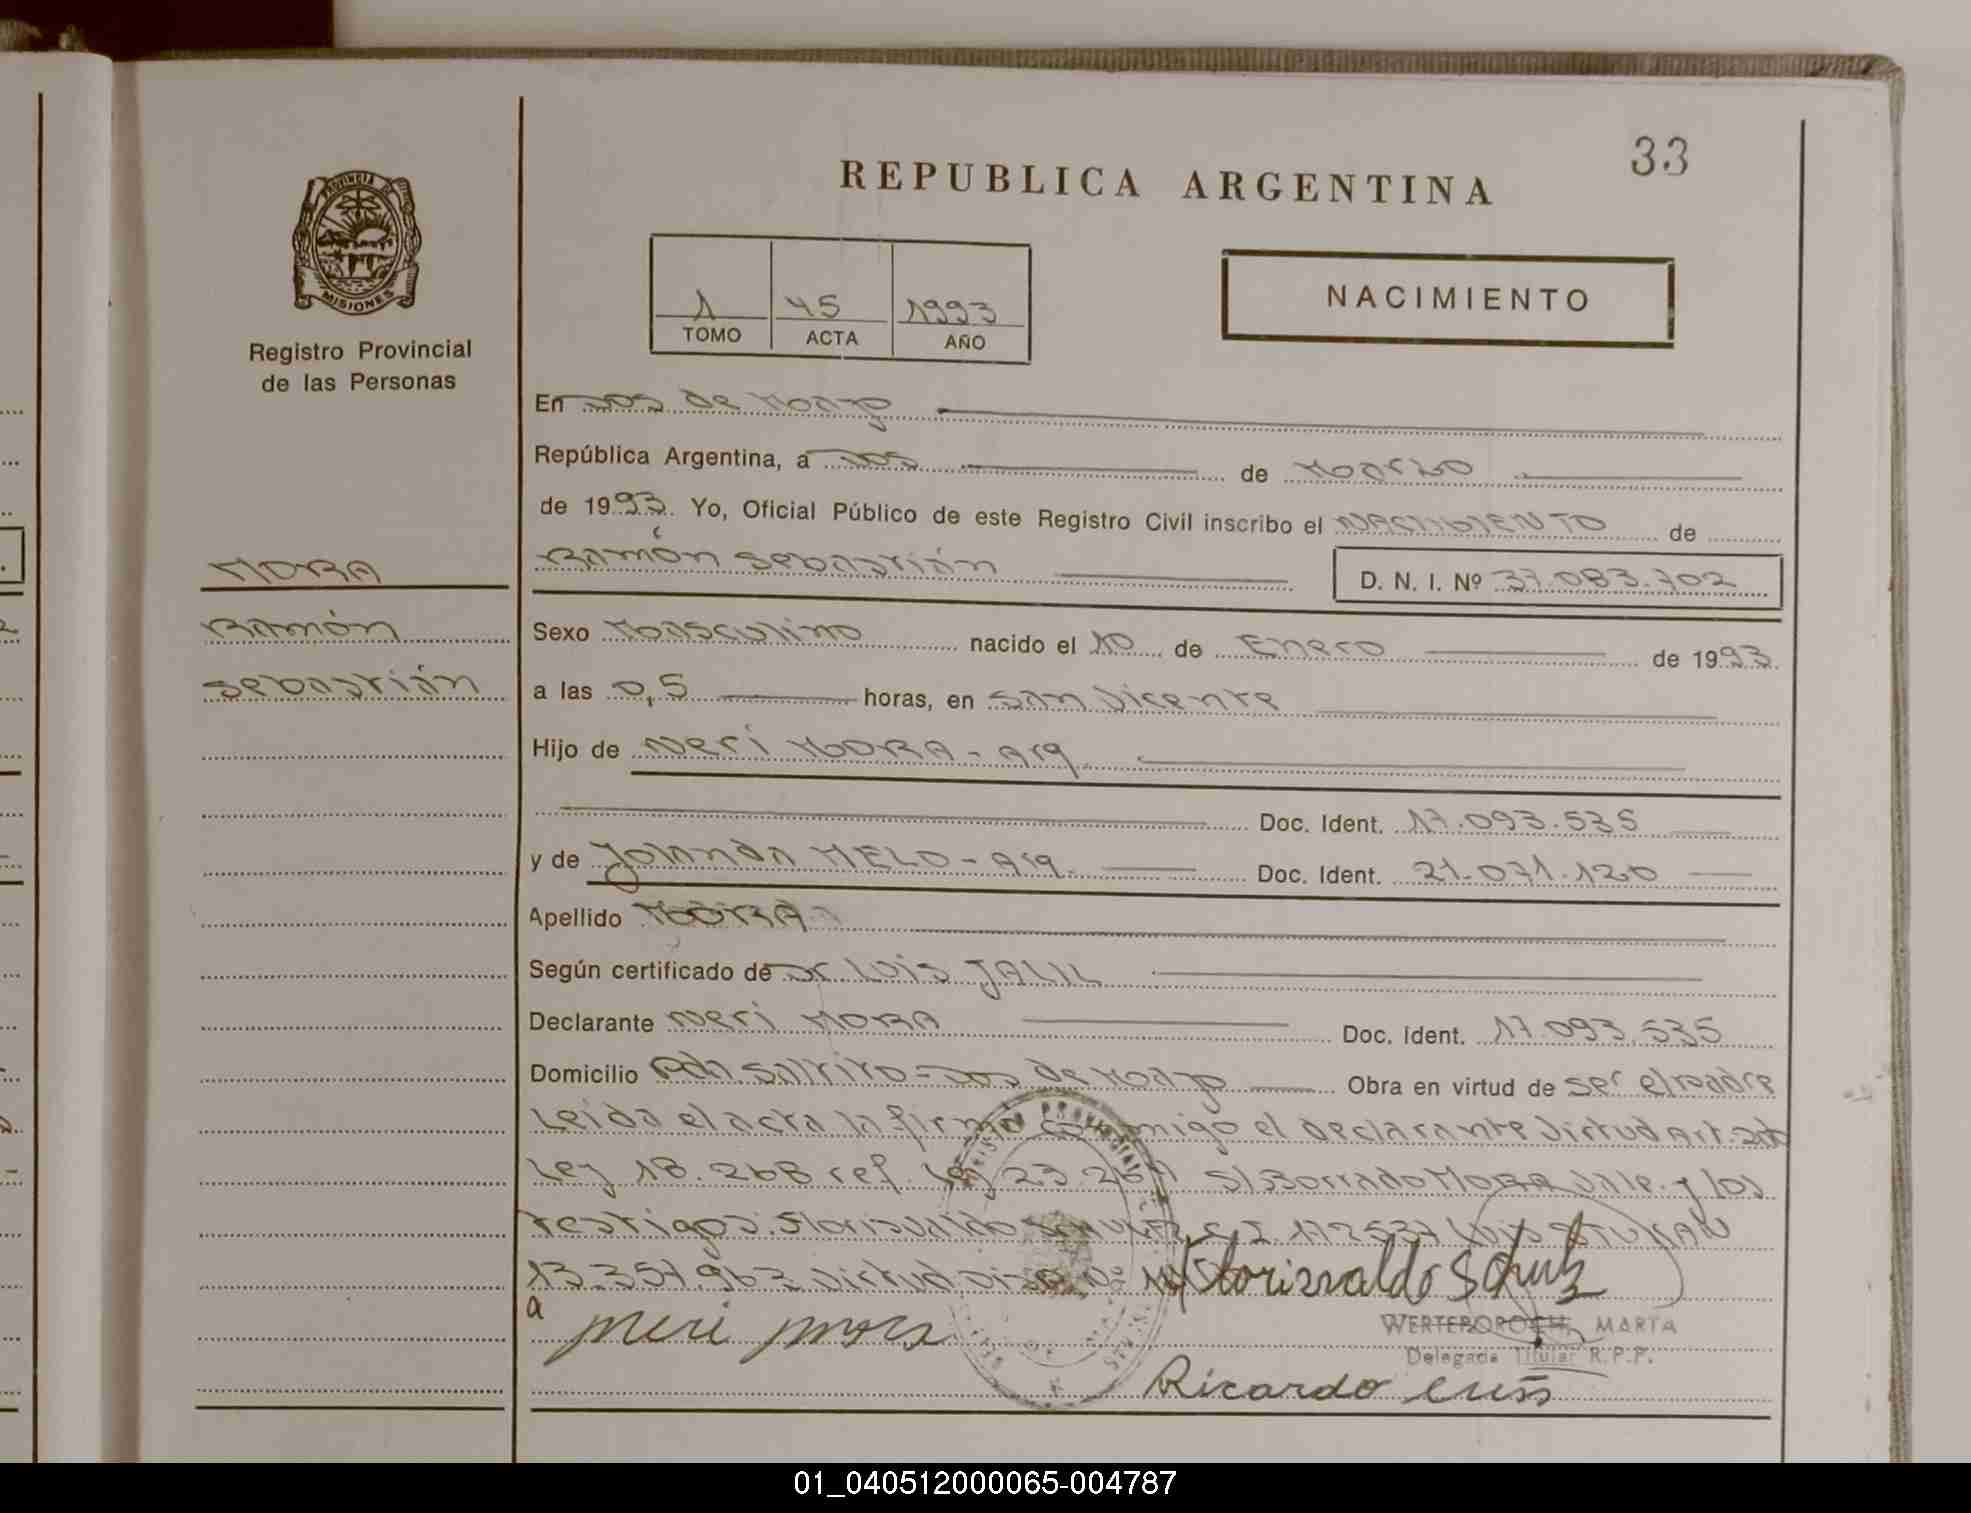 33
REPUBLICA ARGENTINA
PROVINCIA DE
MISIONES
Registro Provincial
de las Personas
1 45 1993
TOMO ACTA AÑO
NACIMIENTO
En Dos de Mayo
República Argentina, a Dos de Marzo
de 1993. Yo, Oficial Público de este Registro Civil inscribo el NACIMIENTO de
Ramón Sebastián D. N. I. Nº 37.083.702
MORA
Ramón
Sebastián
Sexo Masculino nacido el 10 de Enero de 1993.
a las 0,5 horas, en San Vicente
Hijo de Neri MORA - Arg.
Doc. Ident. 17.093.535
y de Yolanda MELO - Arg. Doc. Ident. 21.071.120
Apellido MORA
Según certificado de Dr Luis JALIL
Declarante Neri MORA Doc. Ident. 17.093.535
Domicilio Pda. Saltito - Dos de Mayo Obra en virtud de ser el padre
Leida el acta la firma conmigo el declarante virtud Art.
Ley 18.268 ref. Ley 23. S/Borrado MORA vale. y los
testigos: Florisvaldo C.I. 172537 Luis
13.357.963 virtud Disp. Nº
Florisvaldo Schulz
a
Neri Mora
WERTEROROCH, MARTA
Delegada Titular R.P.P.
Ricardo
01_040512000065-004787